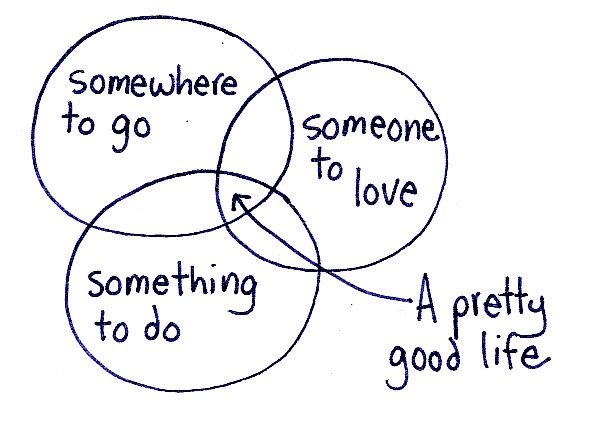 somewhere
to go
someone
to love
something
to do
A pretty
good life